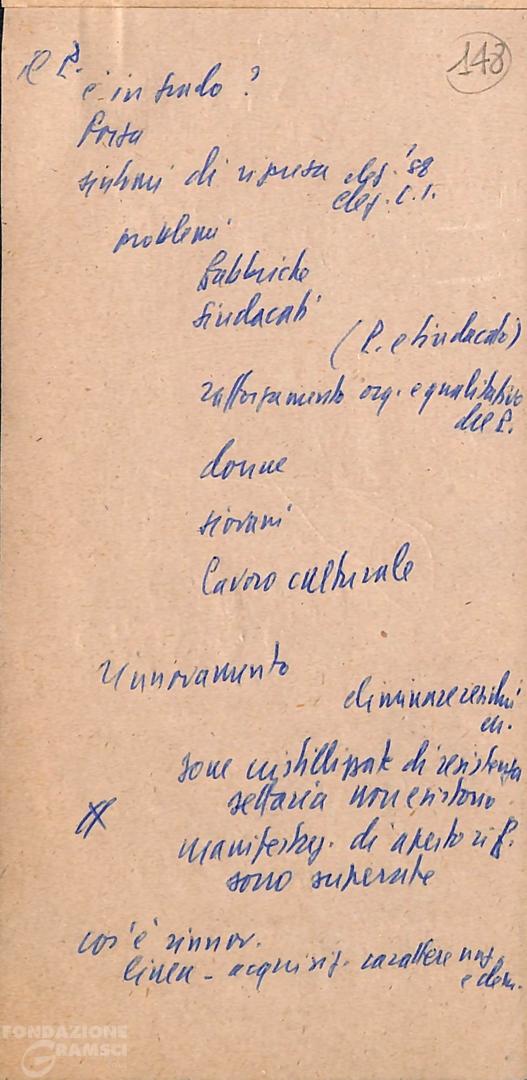 148
il P.
è in grado?
Forza
sintomi di ripresa elez. '58
elez. C.I.
problemi
fabbriche
sindacati
(P. e sindacato)
rafforzamento org. e qualitativo
del P.
donne
giovani
lavoro culturale
rinnovamento
eliminare residui
zone cristallizzate di resistenza
settaria non esistono
manifestaz. di aperto
sono superate
cos'è rinnov.
linea - acquisiz. carattere naz.
e dem.
FONDAZIONE
GRAMSCI